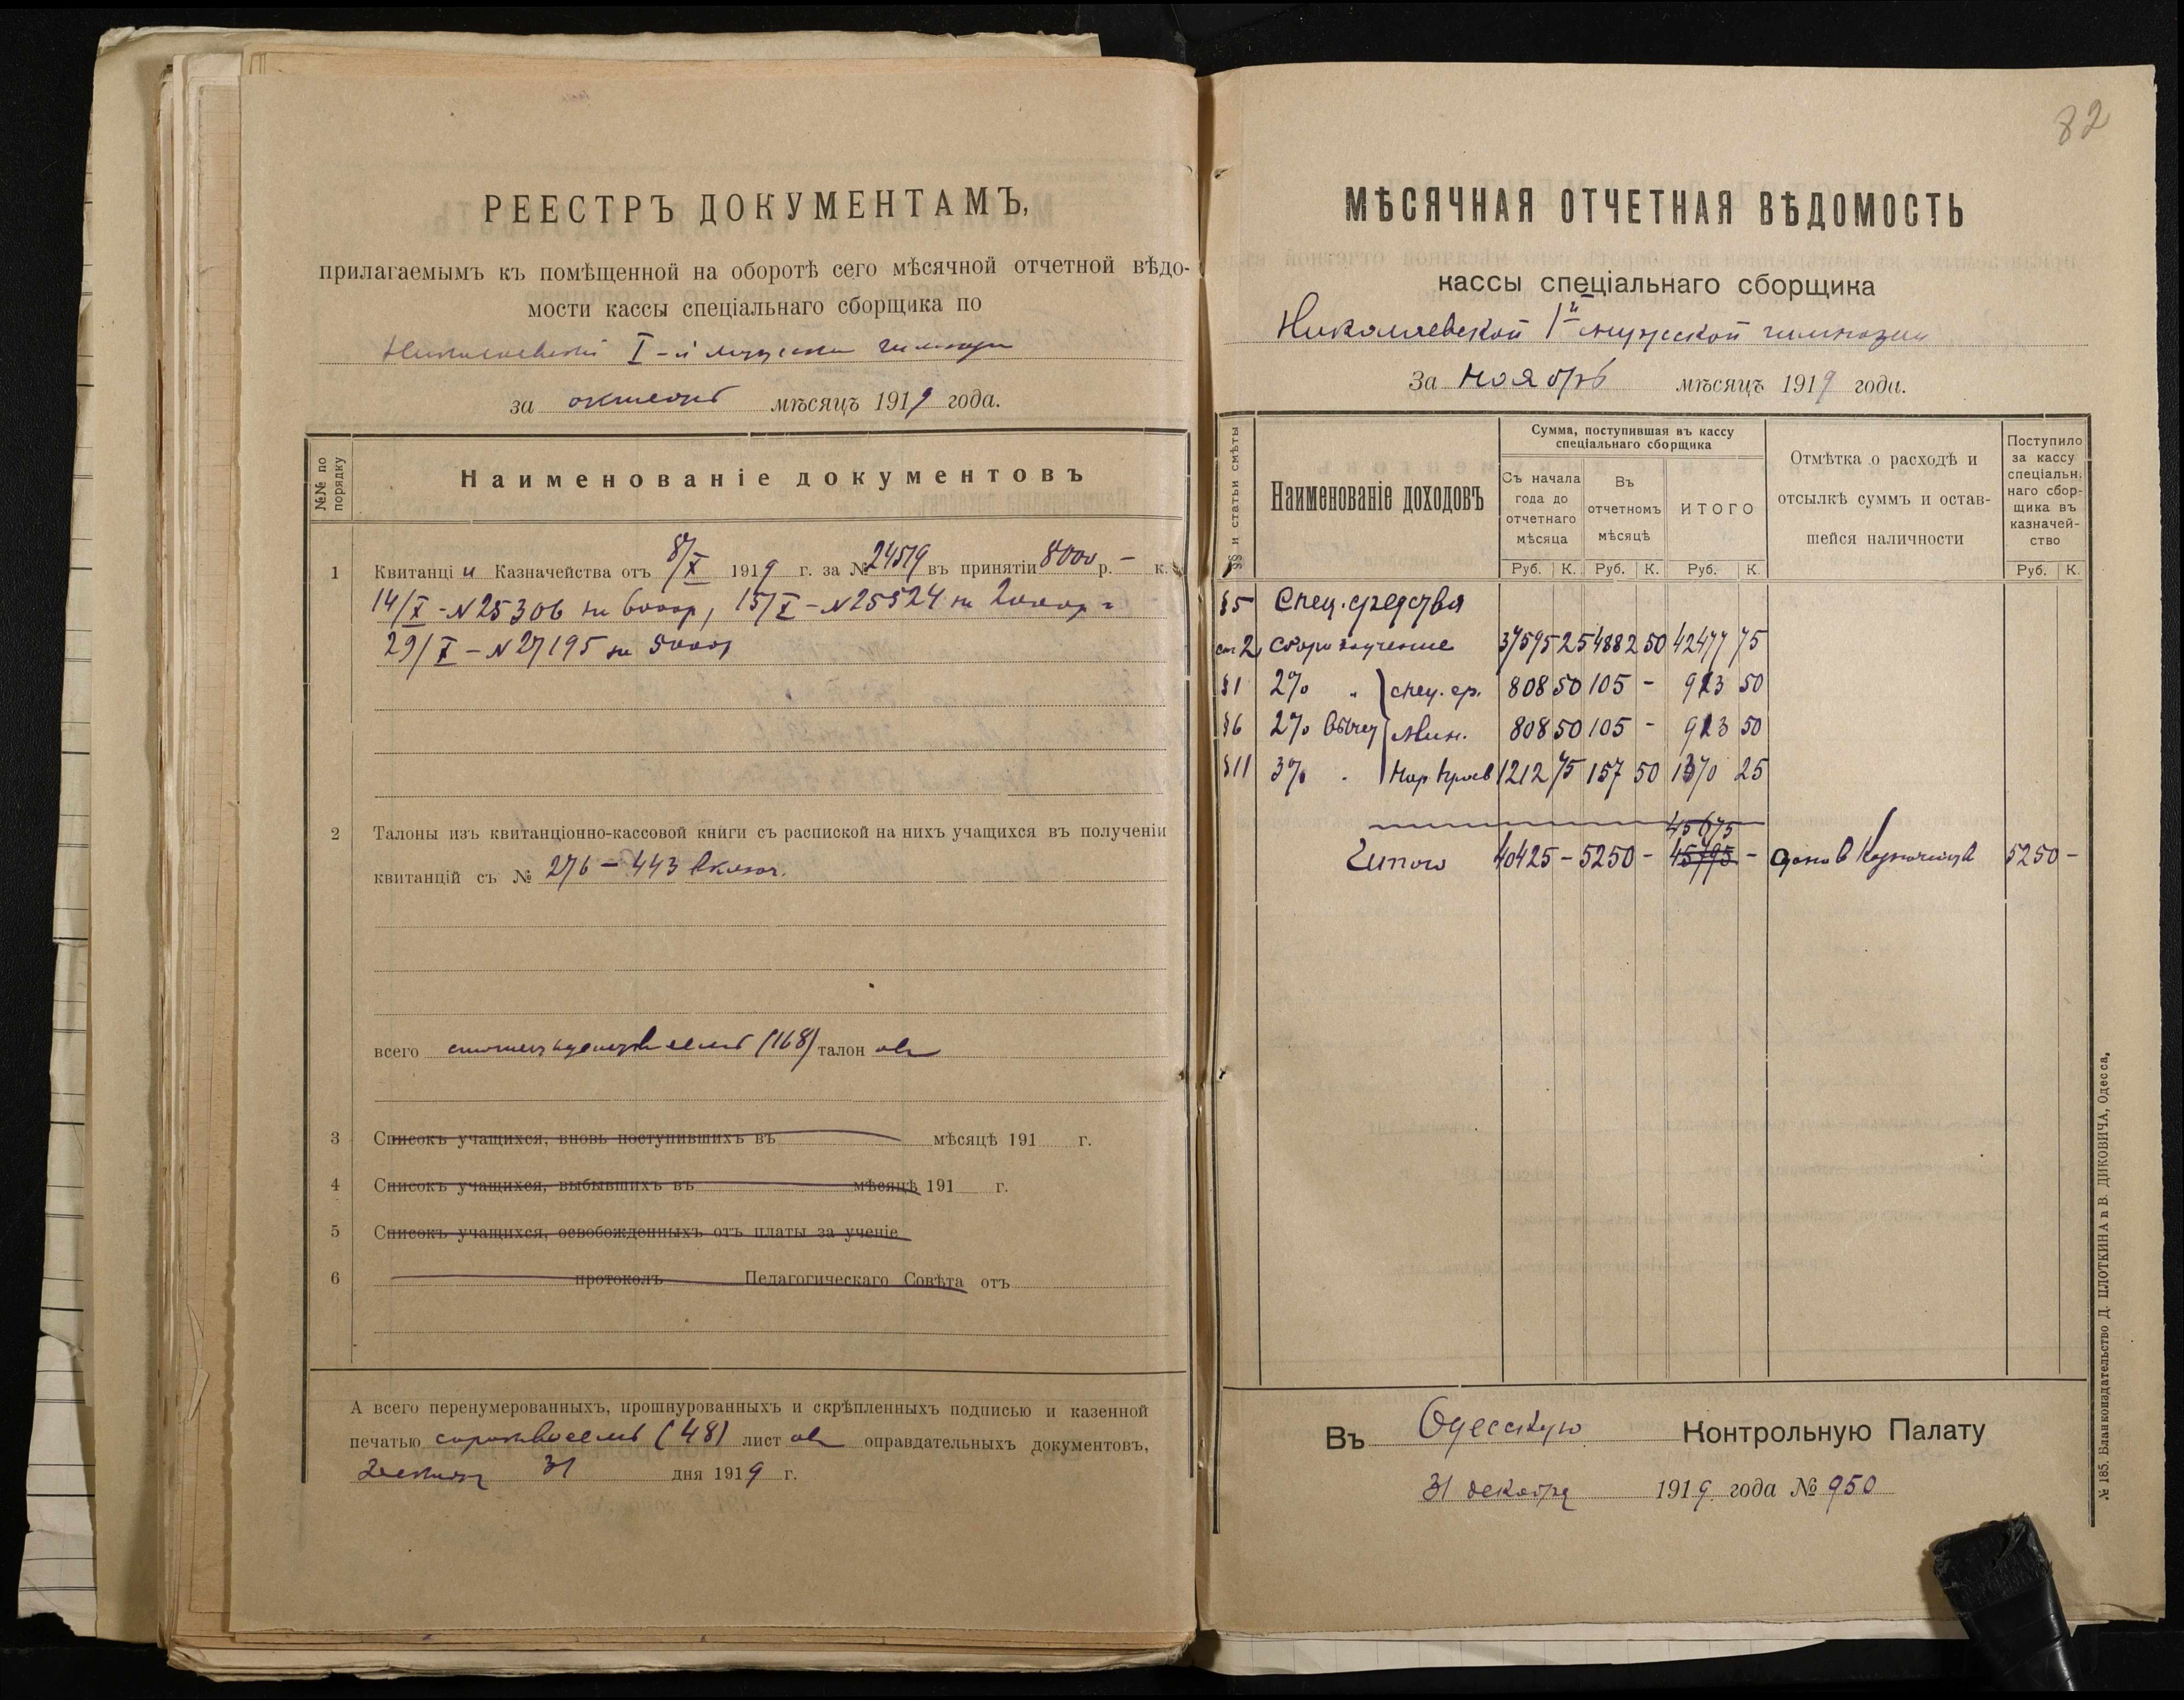 РЕЕСТРЪ ДОКУМЕНТАМЪ,
прилагаемымъ къ помѣщенной на оборотѣ сего мѣсячной отчетной вѣдо-
мости кассы спеціальнаго сборщика по
I-й гимназіи
за октябрь мѣсяцъ 1919 года.
№№ по порядку
Наименованіе документовъ
1 Квитанціи Казначейства отъ 8/X 1919 г. за № 24519 въ принятіи 8000 р. - к.
14/X - N 25306 на 6000р, 15/X - N 25524 на 2000р и
29/X - N 27195 на 5000р
2 Талоны изъ квитанціонно-кассовой книги съ распиской на нихъ учащихся въ полученіи
квитанцій съ № 276 - 443 включ.
всего стошестьдесятъ восемь (168) талоновъ
3 Списокъ учащихся, вновь поступившихъ въ мѣсяцѣ 191 г.
4 Списокъ учащихся, выбывшихъ въ мѣсяцѣ 191 г.
5 Списокъ учащихся, освобожденныхъ отъ платы за ученіе
6 протоколъ Педагогическаго Совѣта отъ
А всего перенумерованныхъ, прошнурованныхъ и скрѣпленныхъ подписью и казенной
печатью сорокъ восемь (48) листовъ оправдательныхъ документовъ,
31 дня 1919 г.
82
МѢСЯЧНАЯ ОТЧЕТНАЯ ВѢДОМОСТЬ
кассы спеціальнаго сборщика
Николаевской 1й мужской гимназіи
За Ноябрь мѣсяцъ 1919 года.
§§ и статьи смѣты
Наименованіе доходовъ
Сумма, поступившая въ кассу спеціальнаго сборщика
Съ начала года до отчетнаго мѣсяца
Въ отчетномъ мѣсяцѣ
ИТОГО
Отмѣтка о расходѣ и отсылкѣ суммъ и остав-шейся наличности
Поступило за кассу спеціальн. наго сбор-щика въ казначей-ство
Руб. К. Руб. К. Руб. К. Руб. К.
§5 Спец. средства
ст 2 Сборъ за ученіе 37595 25 4882 50 42477 75
§1 2% " спец. ср. 808 50 105 - 913 50
§6 2% вычет 808 50 105 - 913 50
§11 3% 1212 75 157 50 1370 25
45675
Итого 40425 - 5250 - 45795 - 5250 -
Въ Одесскую Контрольную Палату
31 декабря 1919 года № 950
№ 185. Бланкоиздательство Д. ПЛОТКИНА и В. ДИКОВИЧА, Одесса,